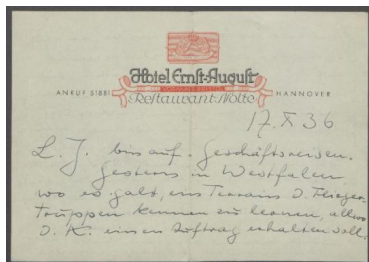 Hotel Ernst-August
ANRUF 51881
Restaurant Nolte
HANNOVER
17. X 36
L. J. bin auf Geschäftsreisen.
Gestern in Westfalen
wo es galt, ein Terrain d. Flieger-
truppen kennen zu lernen, allwo
D. K. einen Auftrag erhalten soll.